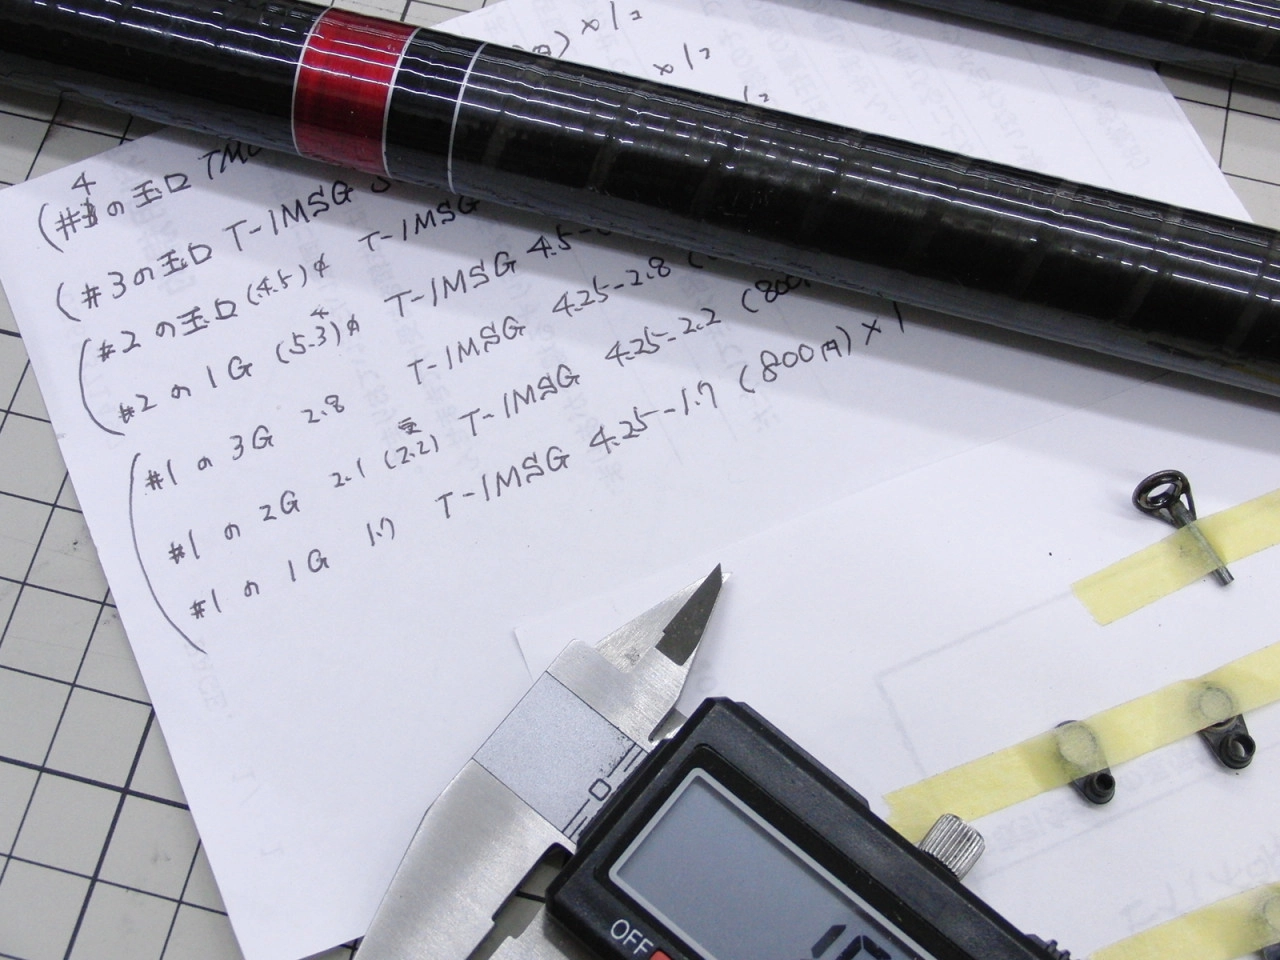 円) × 1/2
× 1/2
1/2
(#4の玉口 TMG
(#3の玉口 T-IMSG
#2の玉口 (4.5)φ T-IMSG
#2の1G (5.3)φ T-IMSG 4.5-
#1の3G 2.8 T-IMSG 4.25-2.8 (
#1の2G 2.1 (2.2) T-IMSG 4.25-2.2 (800
#1の1G 1.7 T-IMSG 4.25-1.7 (800円) × 1
0
OFF